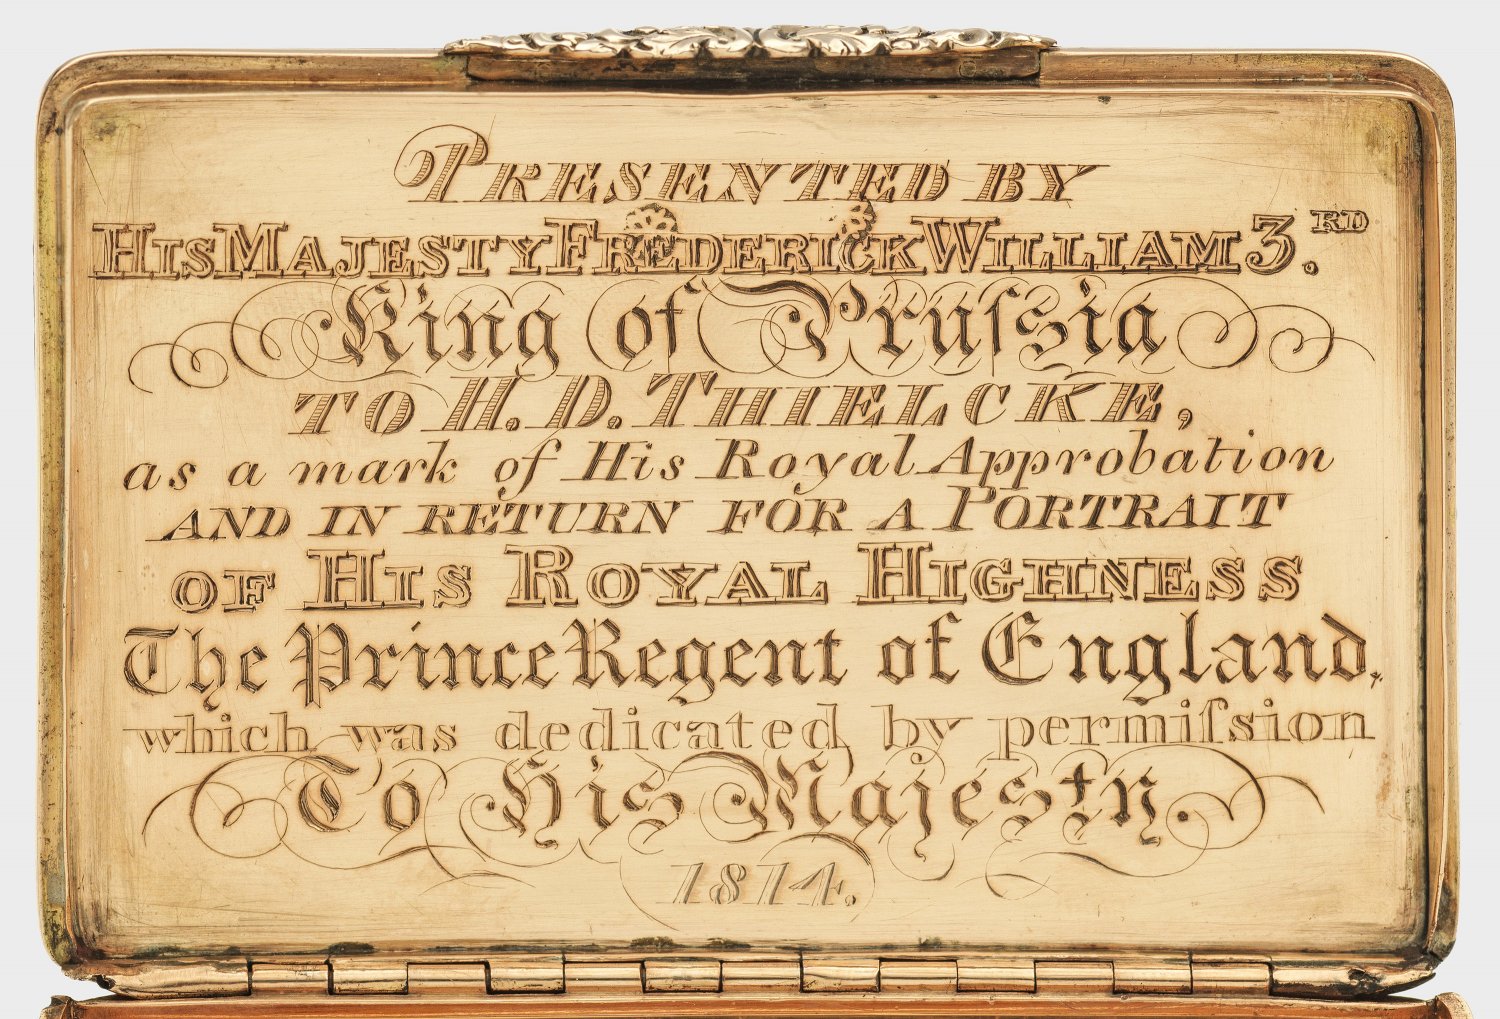 PRESENTED BY
HIS MAJESTY FREDERICK WILLIAM 3.RD
King of Pruſsia
TO H. D. THIELCKE,
as a mark of His Royal Approbation
AND IN RETURN FOR A PORTRAIT
OF HIS ROYAL HIGHNESS
The Prince Regent of England,
which was dedicated by permiſsion
To His Majesty.
1814.